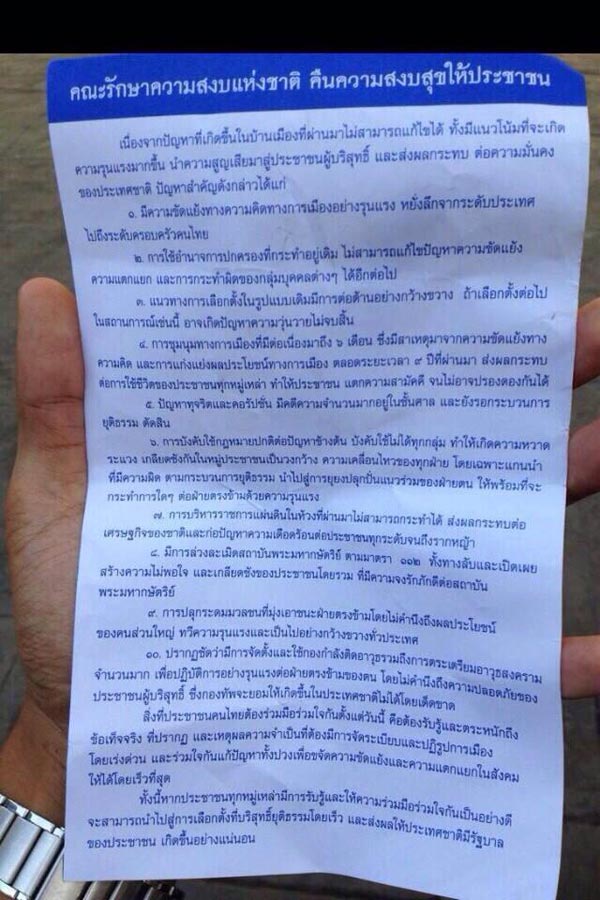 คณะรักษาความสงบแห่งชาติ คืนความสงบสุขให้ประชาชน
เนื่องจากปัญหาที่เกิดขึ้นในบ้านเมืองที่ผ่านมาไม่สามารถแก้ไขได้ ทั้งมีแนวโน้มที่จะเกิด
ความรุนแรงมากขึ้น นำความสูญเสียมาสู่ประชาชนผู้บริสุทธิ์ และส่งผลกระทบ ต่อความมั่นคง
ของประเทศชาติ ปัญหาสำคัญดังกล่าวได้แก่
๑. มีความขัดแย้งทางความคิดทางการเมืองอย่างรุนแรง หยั่งลึกจากระดับประเทศ
ไปถึงระดับครอบครัวคนไทย
๒. การใช้อำนาจการปกครองที่กระทำอยู่เดิม ไม่สามารถแก้ไขปัญหาความขัดแย้ง
ความแตกแยก และการกระทำผิดของกลุ่มบุคคลต่างๆ ได้อีกต่อไป
๓. แนวทางการเลือกตั้งในรูปแบบเดิมมีการต่อต้านอย่างกว้างขวาง ถ้าเลือกตั้งต่อไป
ในสถานการณ์เช่นนี้ อาจเกิดปัญหาความวุ่นวายไม่จบสิ้น
๔. การชุมนุมทางการเมืองที่มีต่อเนื่องมาถึง ๖ เดือน ซึ่งมีสาเหตุมาจากความขัดแย้งทาง
ความคิด และการแก่งแย่งผลประโยชน์ทางการเมือง ตลอดระยะเวลา ๙ ปีที่ผ่านมา ส่งผลกระทบ
ต่อการใช้ชีวิตของประชาชนทุกหมู่เหล่า ทำให้ประชาชน แตกความสามัคคี จนไม่อาจปรองดองกันได้
๕. ปัญหาทุจริตและคอรัปชั่น มีคดีความจำนวนมากอยู่ในชั้นศาล และยังรอกระบวนการ
ยุติธรรม ตัดสิน
๖. การบังคับใช้กฎหมายปกติต่อปัญหาข้างต้น บังคับใช้ไม่ได้ทุกกลุ่ม ทำให้เกิดความหวาด
ระแวง เกลียดชังกันในหมู่ประชาชนเป็นวงกว้าง ความเคลื่อนไหวของทุกฝ่าย โดยเฉพาะแกนนำ
ที่มีความผิด ตามกระบวนการยุติธรรม นำไปสู่การยุยงปลุกปั่นแนวร่วมของฝ่ายตน ให้พร้อมที่จะ
กระทำการใดๆ ต่อฝ่ายตรงข้ามด้วยความรุนแรง
๗. การบริหารราชการแผ่นดินในห้วงที่ผ่านมาไม่สามารถกระทำได้ ส่งผลกระทบต่อ
เศรษฐกิจของชาติและก่อปัญหาความเดือดร้อนต่อประชาชนทุกระดับจนถึงรากหญ้า
๘. มีการล่วงละเมิดสถาบันพระมหากษัตริย์ ตามมาตรา ๑๑๒ ทั้งทางลับและเปิดเผย
สร้างความไม่พอใจ และเกลียดชังของประชาชนโดยรวม ที่มีความจงรักภักดีต่อสถาบัน
พระมหากษัตริย์
๙. การปลุกระดมมวลชนที่มุ่งเอาชนะฝ่ายตรงข้ามโดยไม่คำนึงถึงผลประโยชน์
ของคนส่วนใหญ่ ทวีความรุนแรงและเป็นไปอย่างกว้างขวางทั่วประเทศ
๑๐. ปรากฏชัดว่ามีการจัดตั้งและใช้กองกำลังติดอาวุธรวมถึงการตระเตรียมอาวุธสงคราม
จำนวนมาก เพื่อปฏิบัติการอย่างรุนแรงต่อฝ่ายตรงข้ามของตน โดยไม่คำนึงถึงความปลอดภัยของ
ประชาชนผู้บริสุทธิ์ ซึ่งกองทัพจะยอมให้เกิดขึ้นในประเทศชาติไม่ได้โดยเด็ดขาด
สิ่งที่ประชาชนคนไทยต้องร่วมมือร่วมใจกันตั้งแต่วันนี้ คือต้องรับรู้และตระหนักถึง
ข้อเท็จจริง ที่ปรากฏ และเหตุผลความจำเป็นที่ต้องมีการจัดระเบียบและปฏิรูปการเมือง
โดยเร่งด่วน และร่วมใจกันแก้ปัญหาทั้งปวงเพื่อขจัดความขัดแย้งและความแตกแยกในสังคม
ให้ได้โดยเร็วที่สุด
ทั้งนี้หากประชาชนทุกหมู่เหล่ามีการรับรู้และให้ความร่วมมือร่วมใจกันเป็นอย่างดี
จะสามารถนำไปสู่การเลือกตั้งที่บริสุทธิ์ยุติธรรมโดยเร็ว และส่งผลให้ประเทศชาติมีรัฐบาล
ของประชาชน เกิดขึ้นอย่างแน่นอน